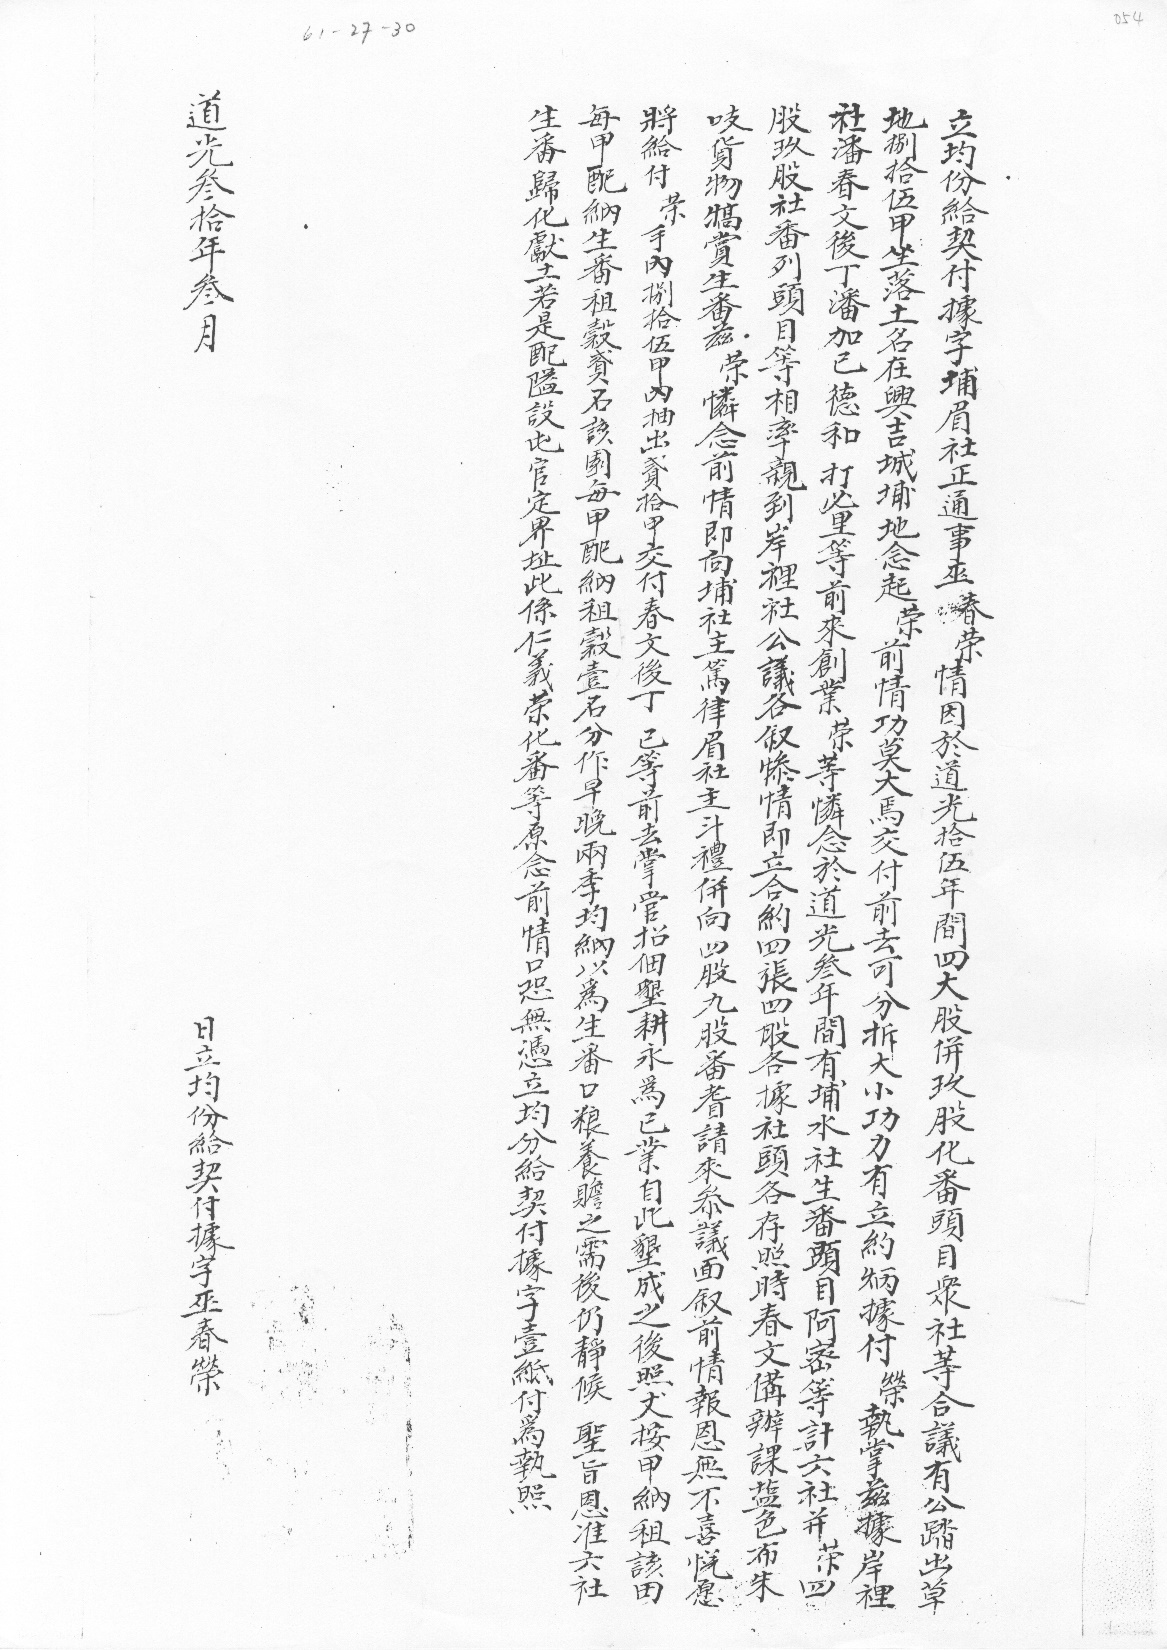 61-27-30
054
立均份給契付據字埔眉社正通事巫春荣情因於道光拾伍年間四大股併玖股化番頭目眾社等合議有公踏出草
地捌拾伍甲坐落土名在興吉城埔地念起荣前情功莫大焉交付前去可分拆大小功力有立約炳據付榮執掌茲據岸裡
社潘春文後丁潘加已德和打必里等前來創業荣等憐念於道光叁年間有埔水社生番頭目阿密等計六社并荣四
股玖股社番列頭目等相率親到岸裡社公議各叙惨情即立合約四張四股各據社頭各存照時春文俻辦課盐色布朱
吱貨物犒賞生番茲荣憐念前情即向埔社主篤律眉社主斗禮併向四股九股番耆請來叅議面叙前情報恩無不喜悅愿
將給付荣手內捌拾伍甲內抽出貳拾甲交付春文後丁已等前去掌管招佃墾耕永為己業自此墾成之後照丈按甲納租該田
每甲配納生番租穀貳石該園每甲配納租穀壹石分作早晚兩季均納以為生番口粮養贍之需後仍靜候聖旨恩准六社
生番歸化獻土若是配隘設屯官定界址此係仁義荣化番等原念前情口恐無憑立均分給契付據字壹紙付為執照
道光叁拾年叁月
日立均份給契付據字巫春榮